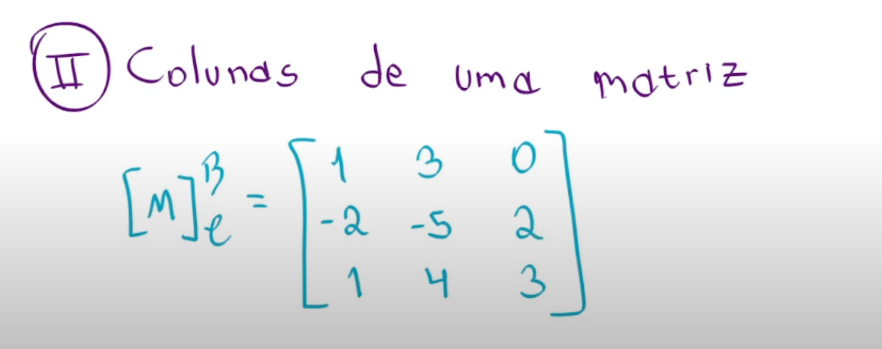 II) Colunas de uma matriz
[M]^B_e = [ 1 3 0
-2 -5 2
1 4 3 ]